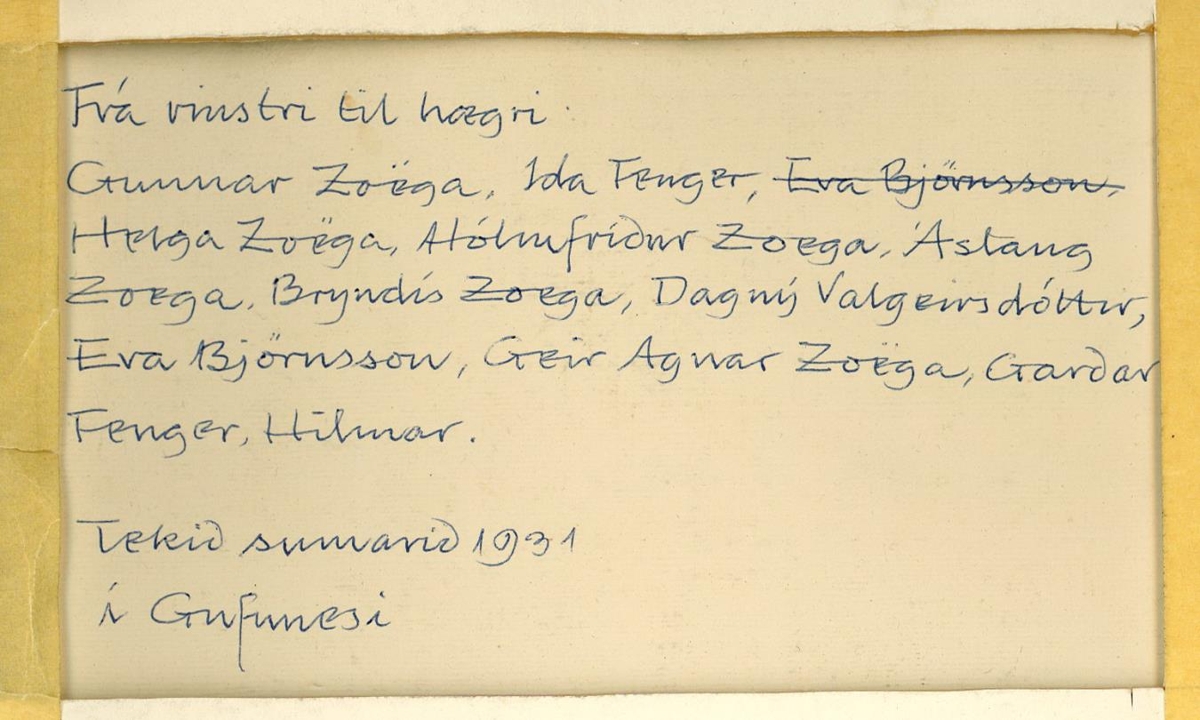 Frá vinstri til hægri:
Gunnar Zoëga, Ida Fenger, ~~Eva Björnsson,~~
Helga Zoëga, Hólmfríður Zoega, Áslaug
Zoega, Bryndís Zoega, Dagný Valgeirsdóttir,
Eva Björnsson, Geir Agnar Zoëga, Garðar
Fenger, Hilmar.
Tekið sumarið 1931
í Gufunesi